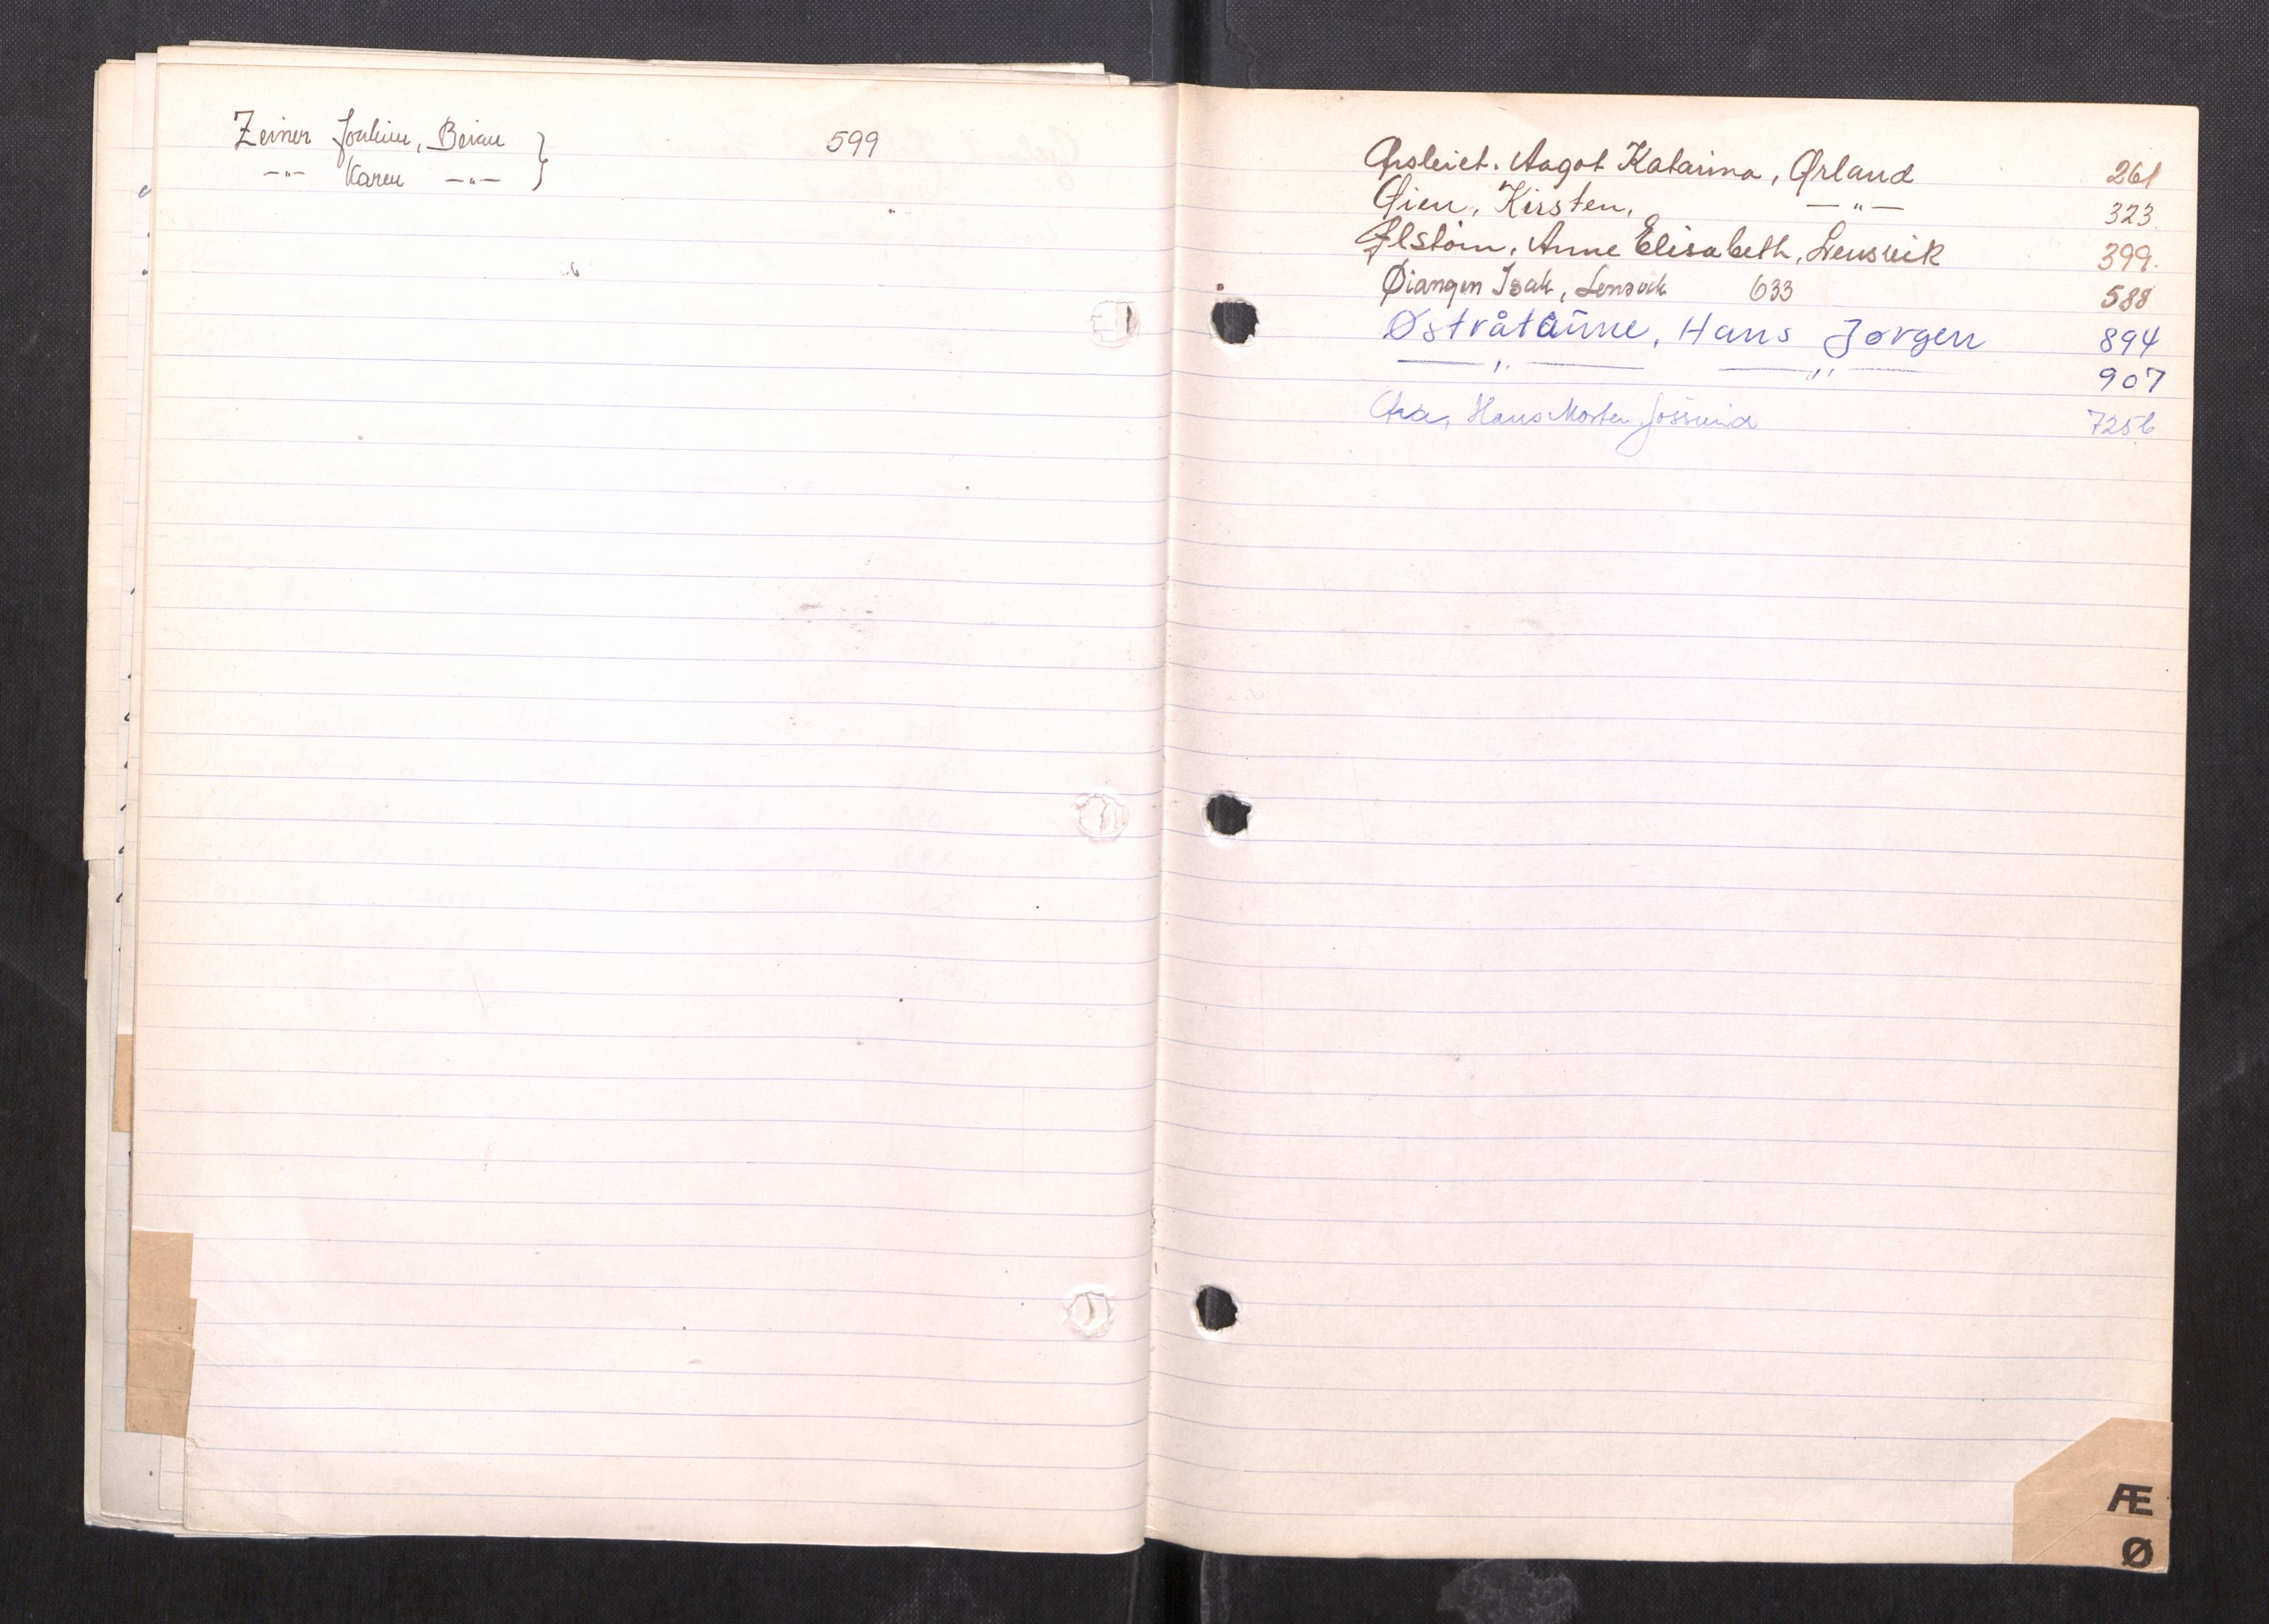 Zeiner Joakim, Beian } 599
—"— Karen —"—
Aagot Katarina, Ørland 261
Øien, Kirsten, —"— 323.
Ølstøin, Anne Elisabeth, Lensvik 399.
Øiangen Isak, Lensvik 633 588
Østråtaūne, Hans Jørgen 894
—"— —"— 907
Hans Morten Jøssund 725b
Æ
Ø